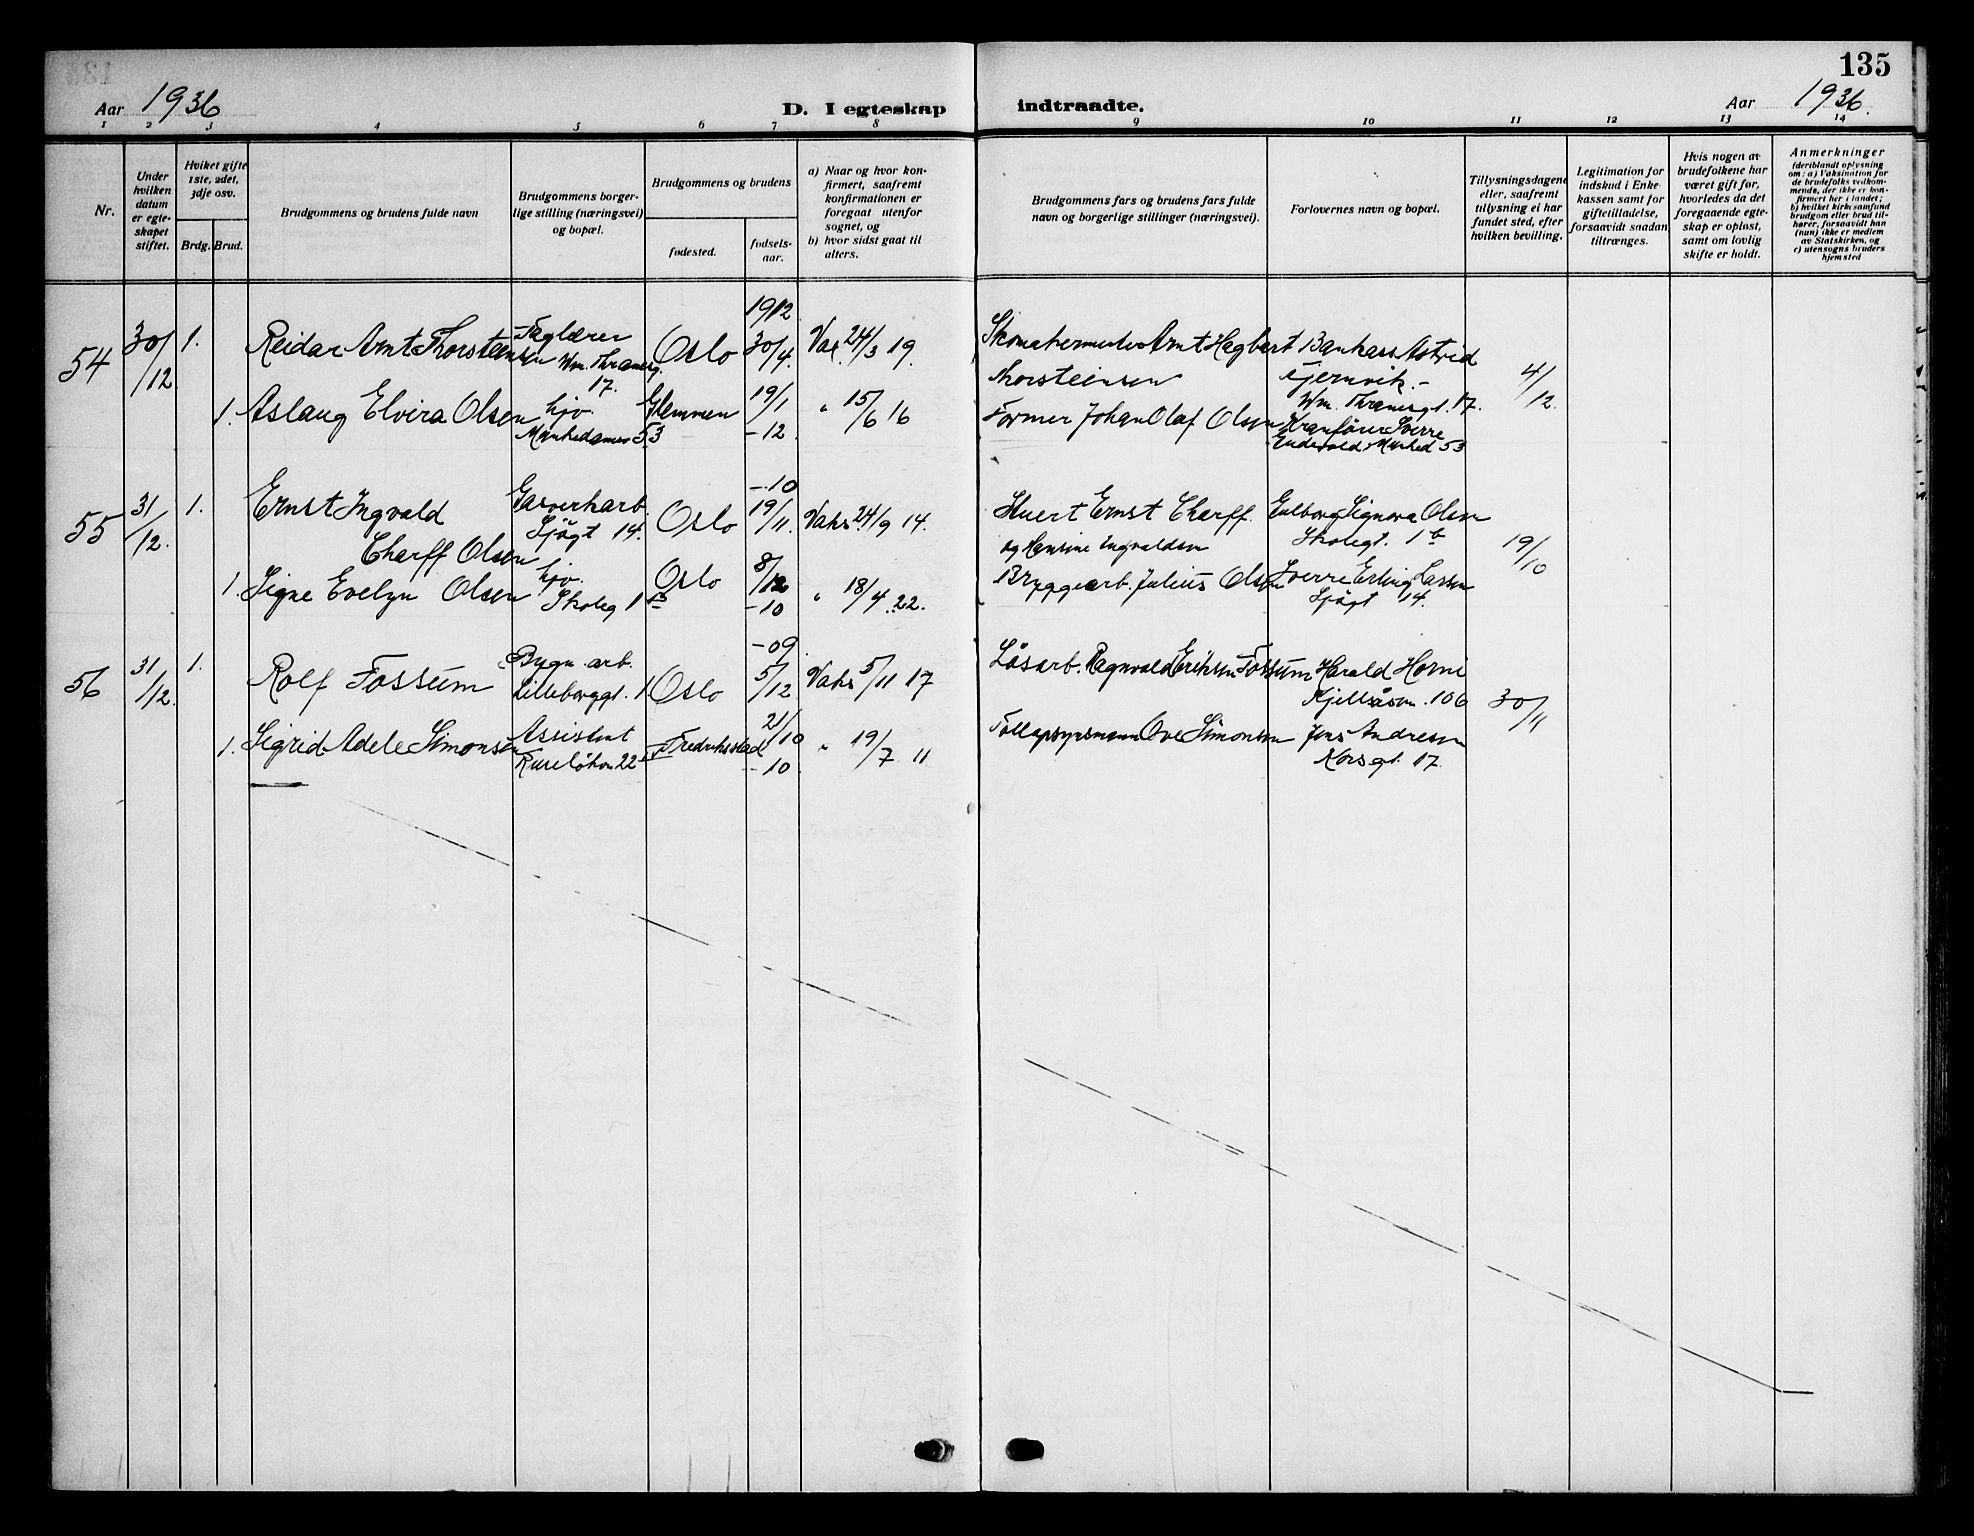 135
Aar 1936
D. I egteskap indtraadte.
Aar 1936.
1 2 3 4 5 6 7 8 9 10 11 12 13 14
Nr.
Under hvilken datum er egteskapet stiftet.
Hvilket gifte 1ste, 2det, 3dje osv.
Brdg. Brud.
Brudgommens og brudens fulde navn
Brudgommens borgerlige stilling (næringsvei) og bopæl.
Brudgommens og brudens
fødested.
fødselsaar.
a) Naar og hvor konfirmert, saafremt konfirmationen er foregaat utenfor sognet, og
b) hvor sidst gaat til alters.
Brudgommens fars og brudens fars fulde navn og borgerlige stillinger (næringsvei).
Forlovernes navn og bopæl.
Tillysningsdagene eller, saafremt tillysning ei har fundet sted, efter hvilken bevilling.
Legitimation for indskud i Enkekassen samt for giftetilladelse, forsaavidt saadan tiltrænges.
Hvis nogen av brudefolkene har været gift før, hvorledes da det foregaaende egteskap er opløst, samt om lovlig skifte er holdt.
Anmerkninger (deriblandt oplysning om: a) Vaksination for de brudefolks vedkommende, der ikke er konfirmert her i landet; b) hvilket kirkesamfund brudgom eller brud tilhører, forsaavidt han (hun) ikke er medlem av Statskirken, og c) utensogns bruders hjemsted
54 30/12 1. Reidar Arnt Thorsteinsen Faglærer Wm. Thranesg. 17. Oslo 1912 30/4 Vax. 24/3 19. Skomakermester Arnt Hagbart Thorsteinsen Bankass Astrid Tjernvik.- Wm. Thranesgt. 17. 4/12.
1. Aslaug Elvira Olsen hjv. Munkedamsv 53 Glemmen 19/1 -12 " 15/6 16 Former Johan Olaf Olsen Kranfører Sverre Endevold Munked 53
55 31/12. 1. Ernst Ingvald Charff Olsen Gasverkarb. Sjögt 14. Oslo -10 19/11. Vaks 24/9 14. Huert Ernst Charff og Hansine Ingvaldsen Signora Olsen Skolegt. 1b 19/10
1. Signe Evelyn Olsen hjv. Skoleg 1b Oslo 8/12 -10 " 18/4 22. Bryggearb. Julius Olsen Sverre Erling Larsen Sjögt 14.
56 31/12. 1. Rolf Fossum Bygn. arb. Lilleborggt. 1 Oslo -09 5/12 Vaks 5/11 17 Løsarb. Ragnvald Eriksen Fossum Harald Horni Kjelsåsvn. 106 30/11
1. Sigrid Adele Simonsen Assistent Ruseløkvn 22 Fredrikstad 21/10 -10 " 19/7 11 Tollopsynsmann Ove Simonsen Jens Andresen Korsgt. 17